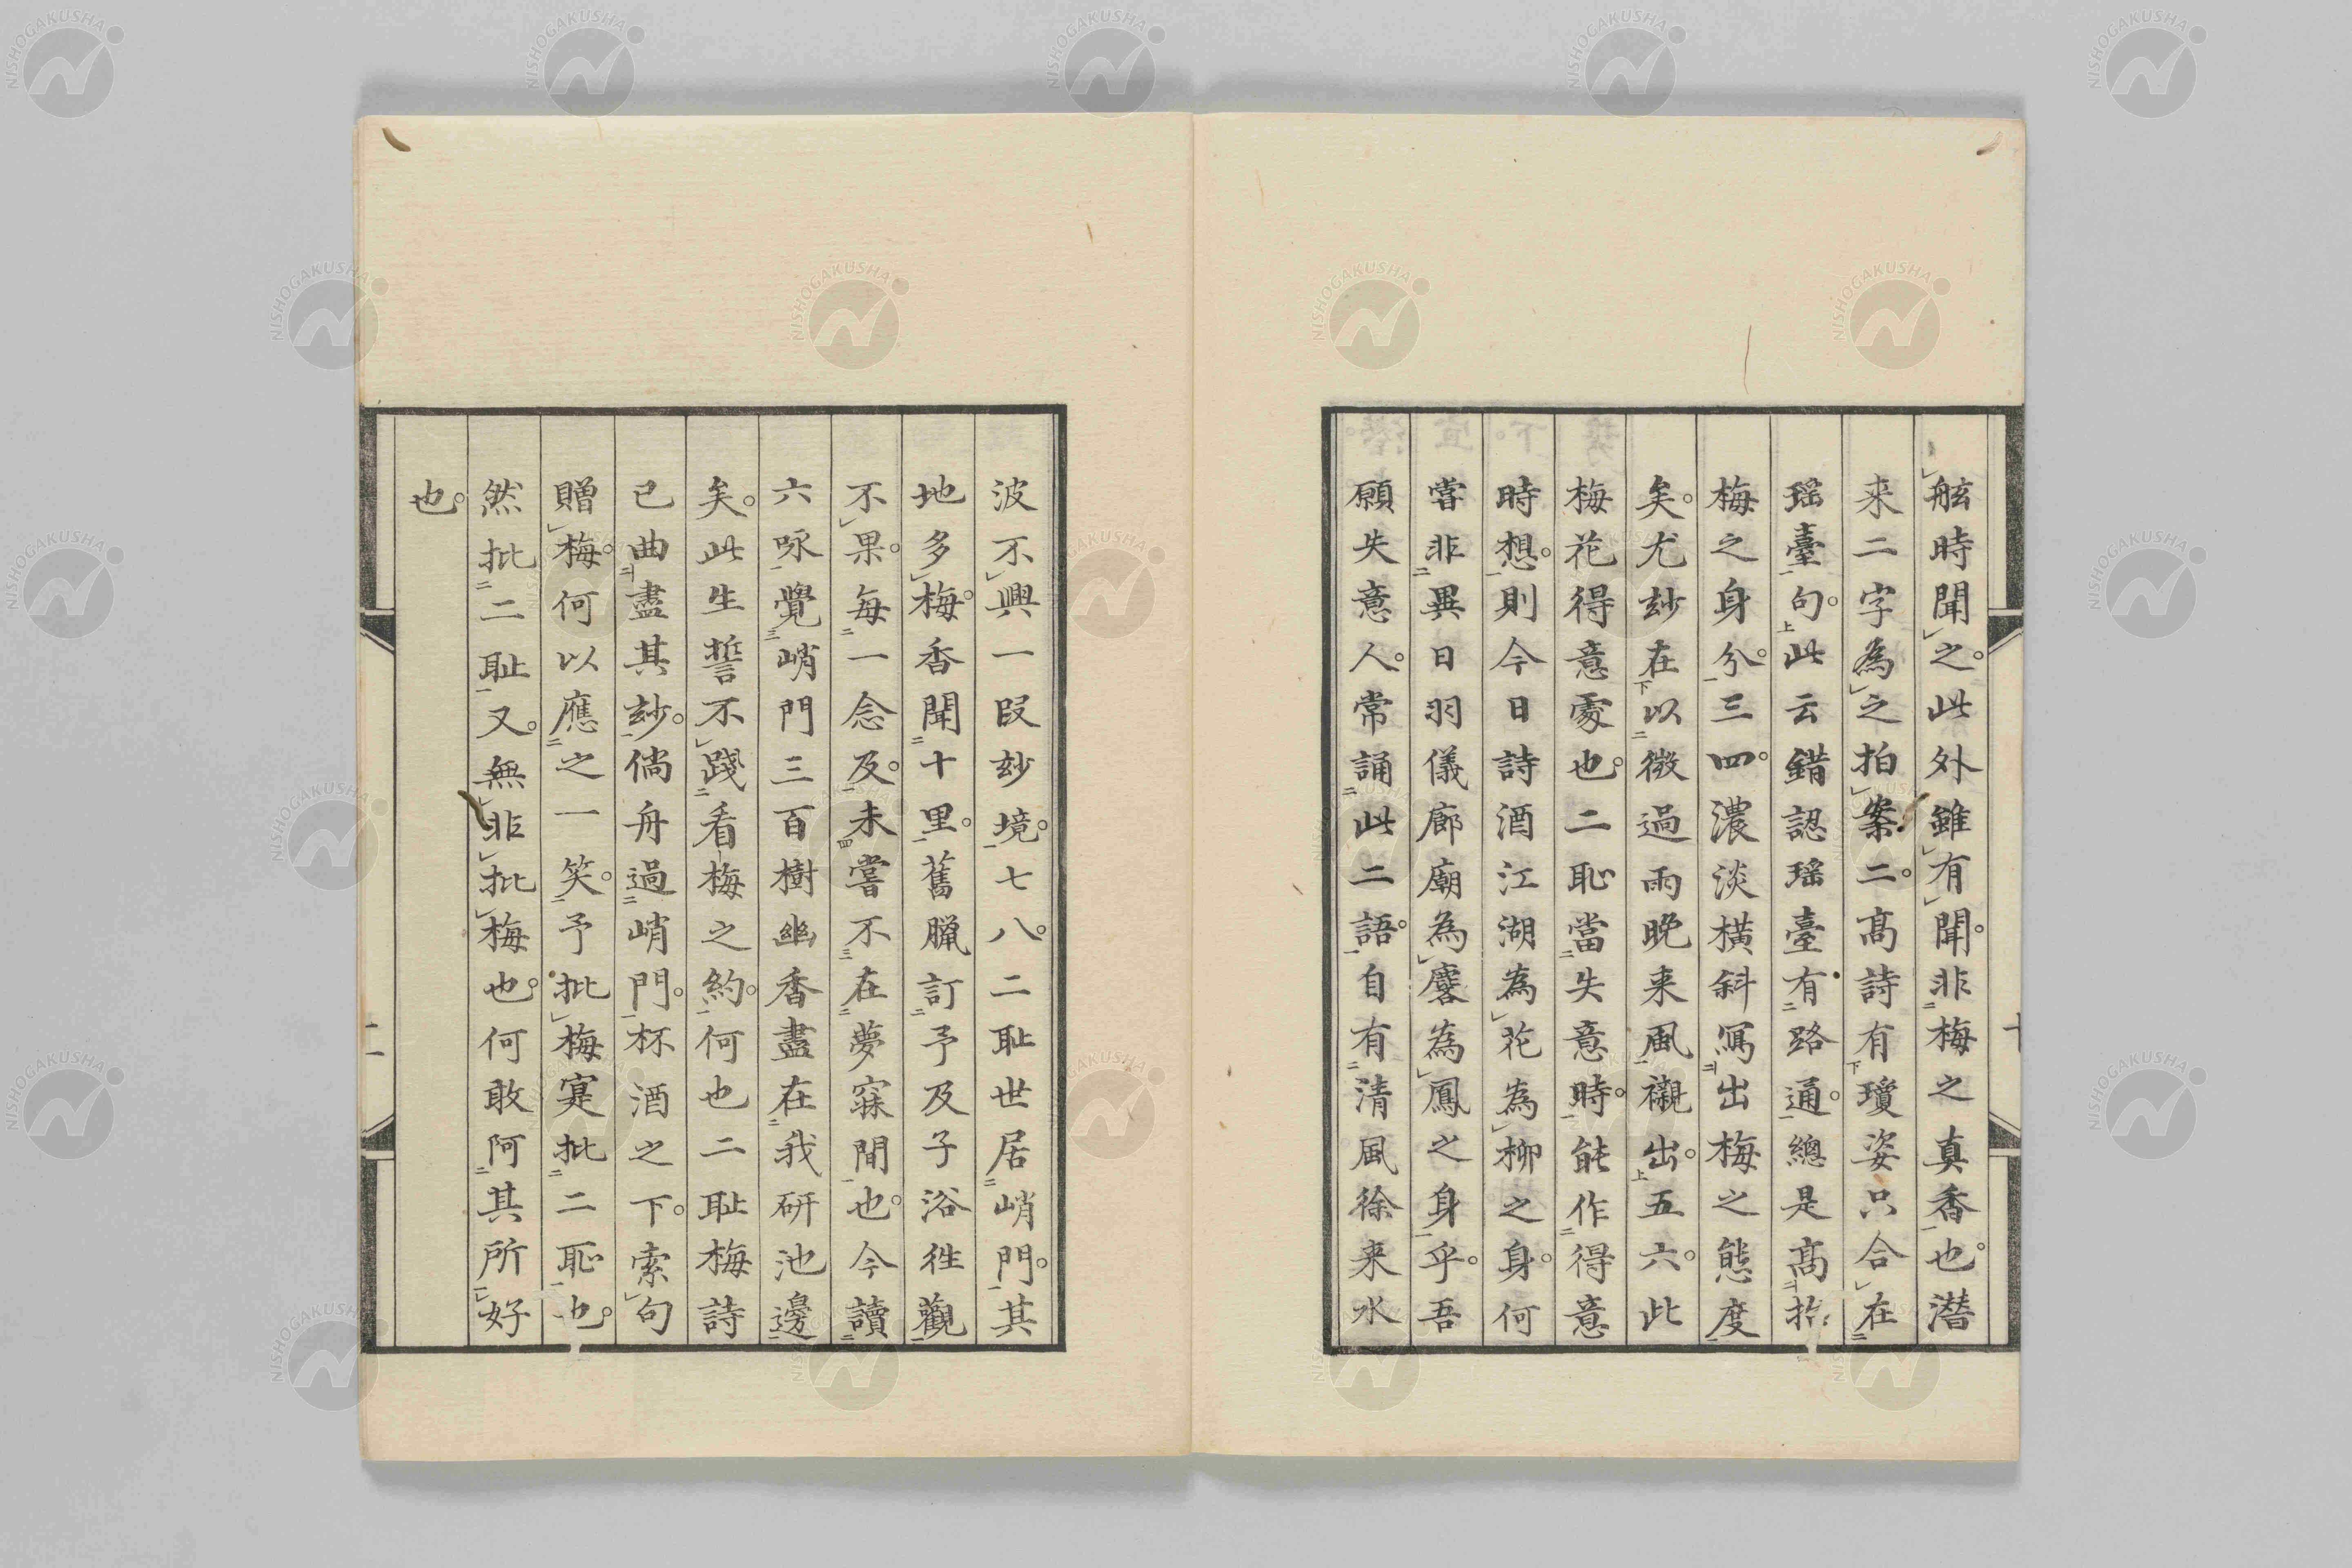 舷時聞之。此外雖有聞。非梅之真香也。潜
来二字為之拍案。二。高詩有瓊姿只合在
瑶臺句。此云錯認瑶臺有路通。總是高
梅之身分。三四。濃淡横斜寫出梅之態度
矣。尤玅在以微過雨晚来風襯出。五六。此
梅花得意處也。二恥當失意時。能作得意
時想。則今日詩酒江湖為花為柳之身。何
嘗非異日羽儀廊廟為麐為鳳之身乎。吾
願失意人。常誦此二語。自有清風徐来水
波不興一段玅境。七八。二耻世居峭門。其
地多梅。香聞十里。舊臘訂予及子浴徃觀
不果。每一念及。未嘗不在夢寐間也。今讀
六咏覺峭門三百樹幽香盡在我研池邊
矣。此生誓不踐看梅之約。何也二耻梅詩
已曲盡其玅。倘舟過峭門。杯酒之下。索句
贈梅。何以應之一笑。予批梅寔批二恥也。
然批二耻又。無非批梅也。何敢阿其所好
也。
NISHOGAKUSHA